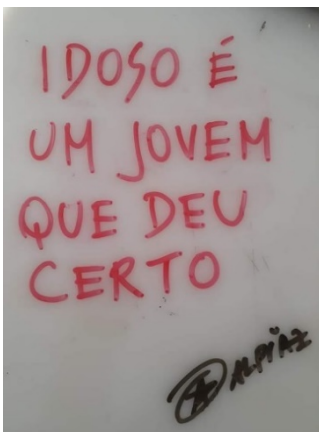 IDOSO É
UM JOVEM
QUE DEU
CERTO